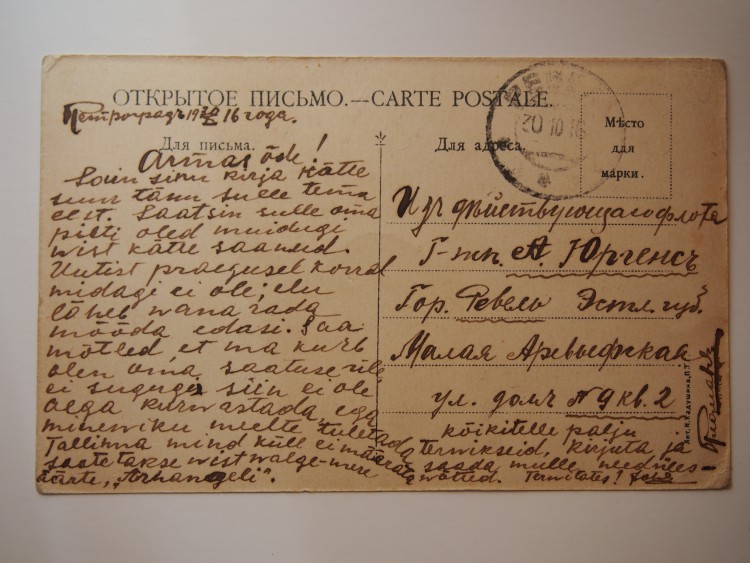 ОТКРЫТОЕ ПИСЬМО.—CARTE POSTALE.
Петроградъ 19 20/X 16 года.
Для письма.
Для адреса.
Мѣсто
для
марки.
20 10 16
Armas õde!
Sain sinu kirja kätte
suur tänu sulle tema
eest. Saatsin sulle oma
pilti oled muidugi
wist kätte saanud.
Uutist praegusel korral
midagi ei ole; elu
läheb wana rada
mööda edasi. Saa
mõtled, et ma kurb
olen oma saatuse üle
ei sugugi siin ei ole
aega kurwastada ega
minewiku meelte tuletada
Tallinna mind küll ei määrata
saatetakse wist walge-mere
äärte, „Arhangeli".
Изъ дѣйствующаго флота
Г-жѣ. А. Юргенсъ
Гор. Ревель Эстл. губ.
Малая
ул. домъ № 9 кв. 2
kõikitelle palju
terwikseid, kirjuta ja
saada mulle need üles-
wõtted. Terwitates!